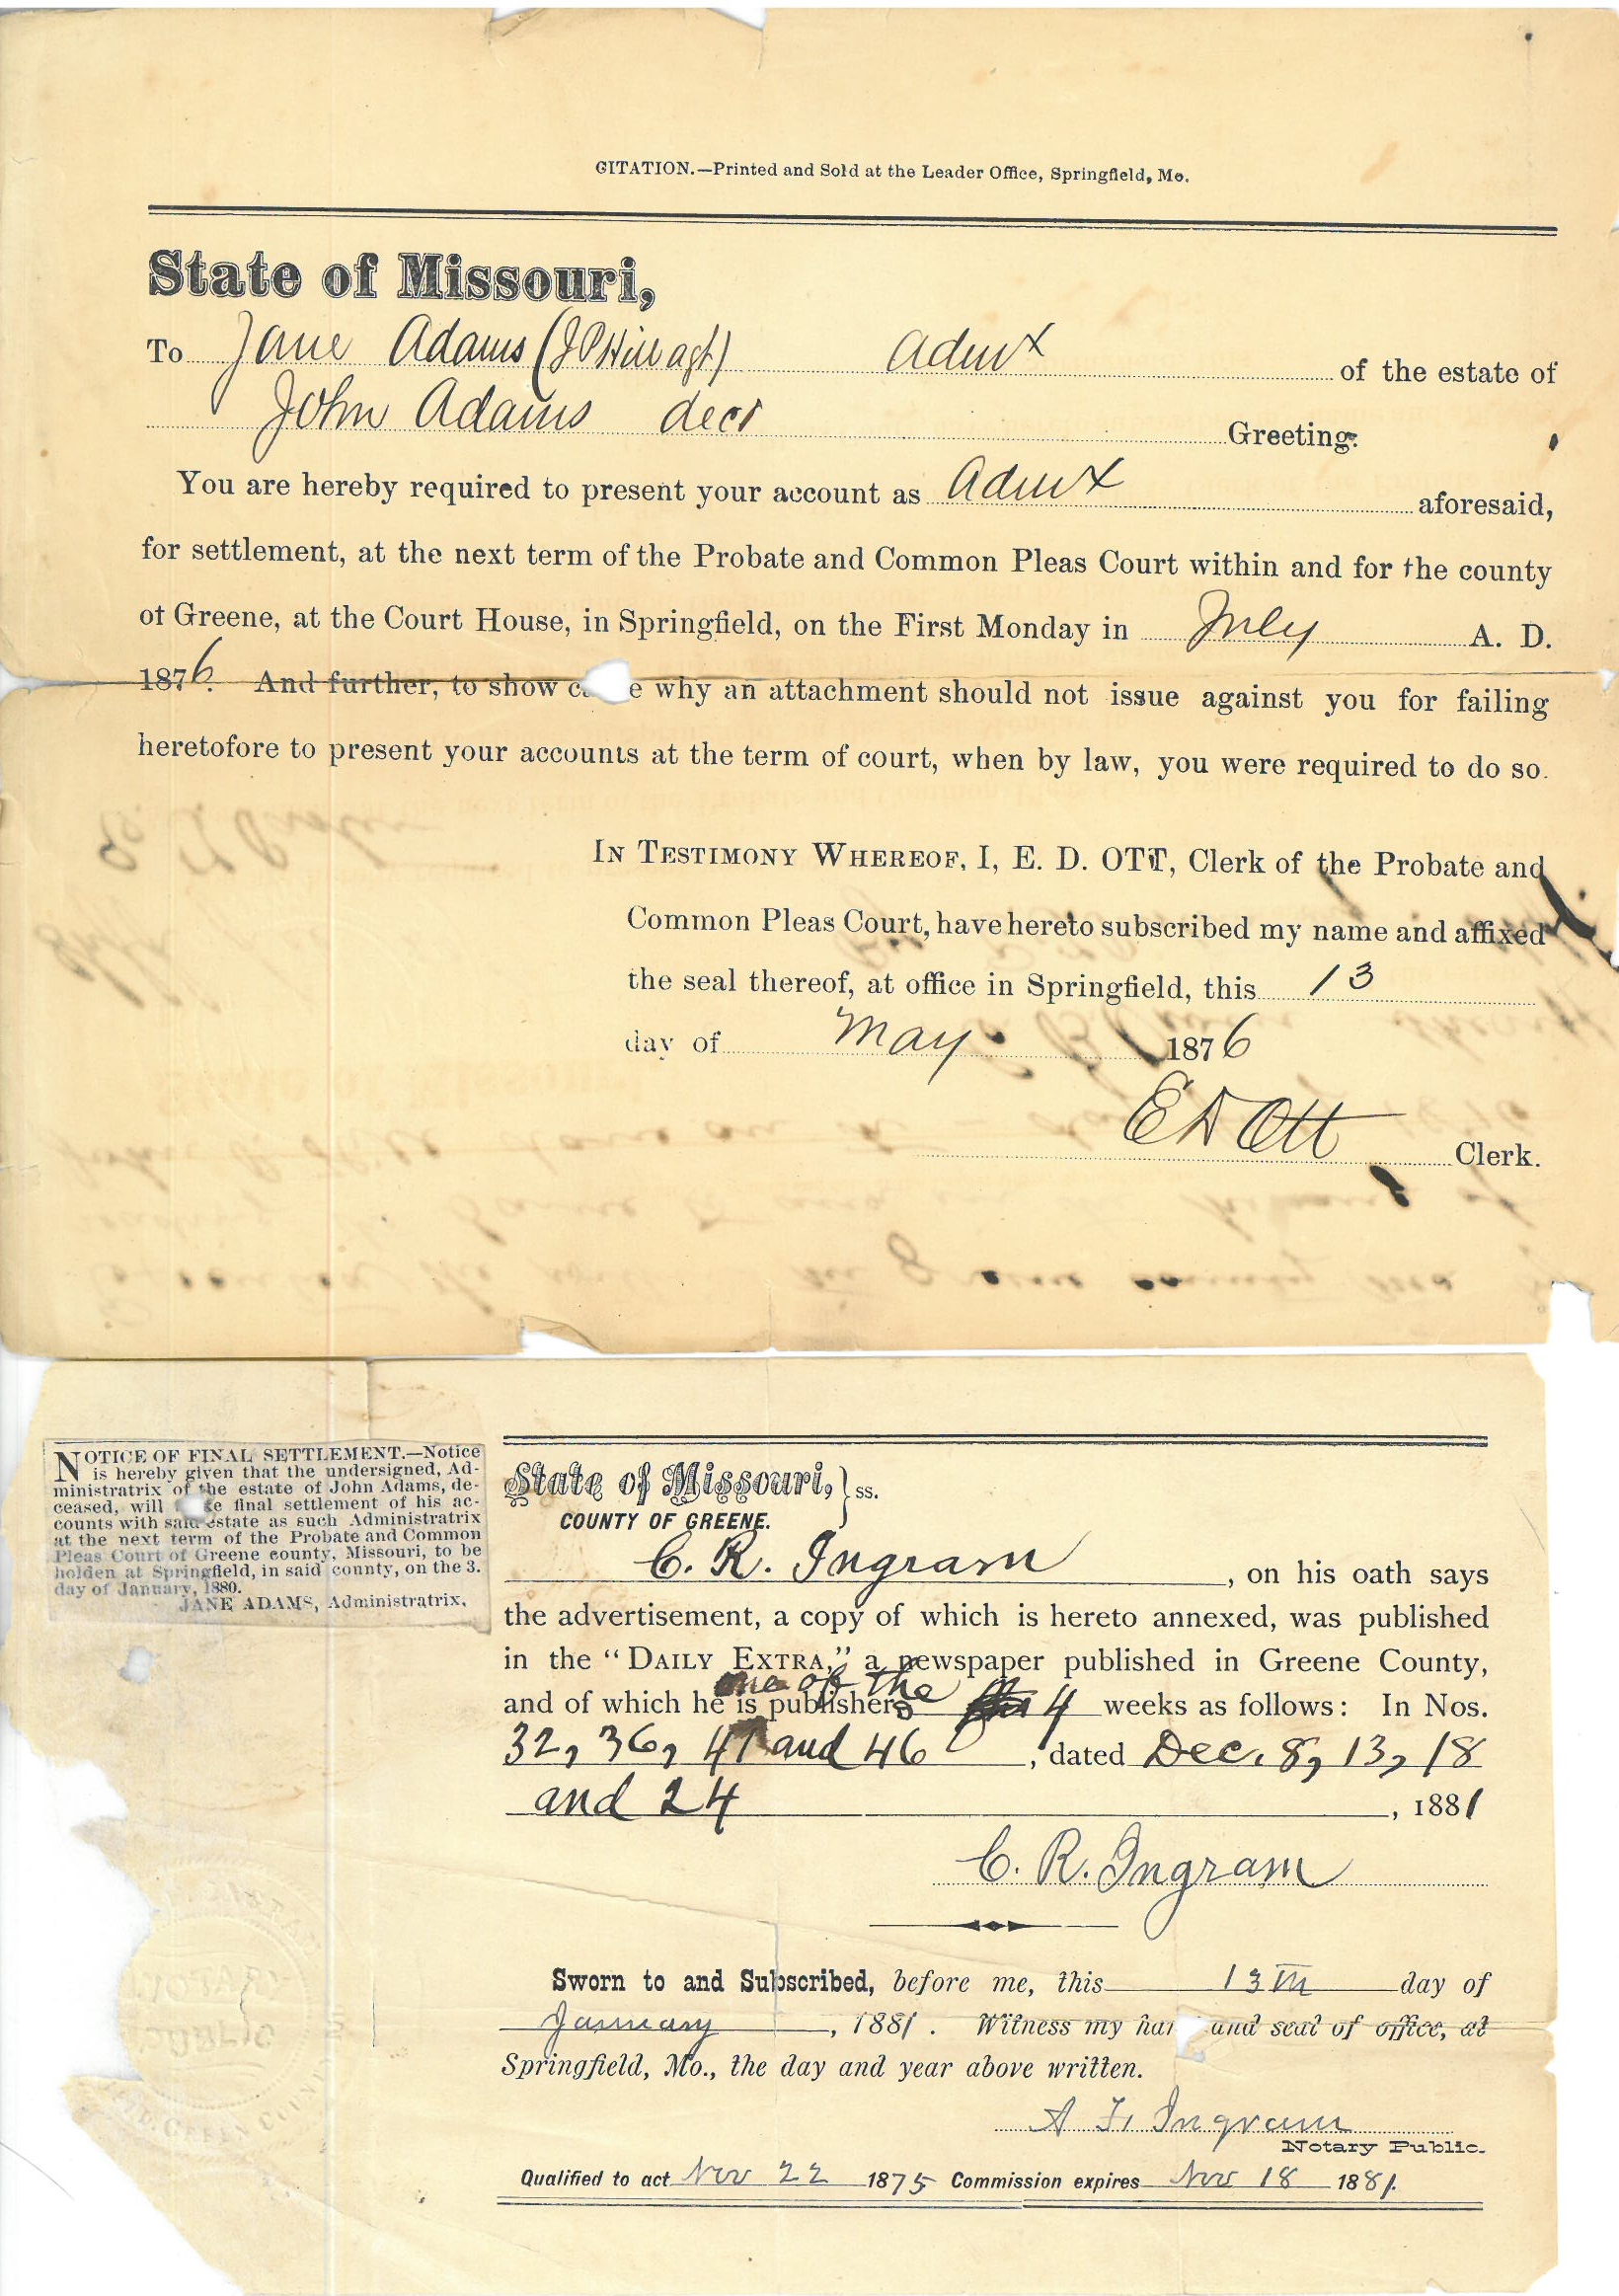 CITATION.—Printed and Sold at the Leader Office, Springfield, Mo.
State of Missouri,
To Jane Adams (J P Hill agt) Admx of the estate of
John Adams decd Greeting:
You are hereby required to present your account as Admx aforesaid,
for settlement, at the next term of the Probate and Common Pleas Court within and for the county
of Greene, at the Court House, in Springfield, on the First Monday in July A. D.
1876. And further, to show c e why an attachment should not issue against you for failing
heretofore to present your accounts at the term of court, when by law, you were required to do so.
IN TESTIMONY WHEREOF, I, E. D. OTT, Clerk of the Probate and
Common Pleas Court, have hereto subscribed my name and affixed
the seal thereof, at office in Springfield, this 13
day of May 1876
E D Ott Clerk.
NOTICE OF FINAL SETTLEMENT.—Notice
is hereby given that the undersigned, Ad-
ministratrix of the estate of John Adams, de-
ceased, will ke final settlement of his ac-
counts with said estate as such Administratrix
at the next term of the Probate and Common
Pleas Court of Greene county, Missouri, to be
holden at Springfield, in said county, on the 3.
day of January, 1880.
JANE ADAMS, Administratrix.
State of Missouri, } ss.
COUNTY OF GREENE.
C. R. Ingram, on his oath says
the advertisement, a copy of which is hereto annexed, was published
in the "DAILY EXTRA," a newspaper published in Greene County,
one of the
and of which he is publishers 4 weeks as follows: In Nos.
32, 36, 41 and 46, dated Dec. 8, 13, 18
and 24, 1881
C. R. Ingram
Sworn to and Subscribed, before me, this 13th day of
January, 1881. Witness my han and seal of office, at
Springfield, Mo., the day and year above written.
A F Ingram
Notary Public.
Qualified to act Nov 22 1875 Commission expires Nov 18 1881.